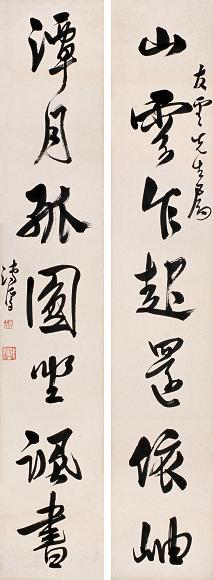 友雲先生屬
山雲乍起還依岫
潭月孤圓坐諷書
溥儒